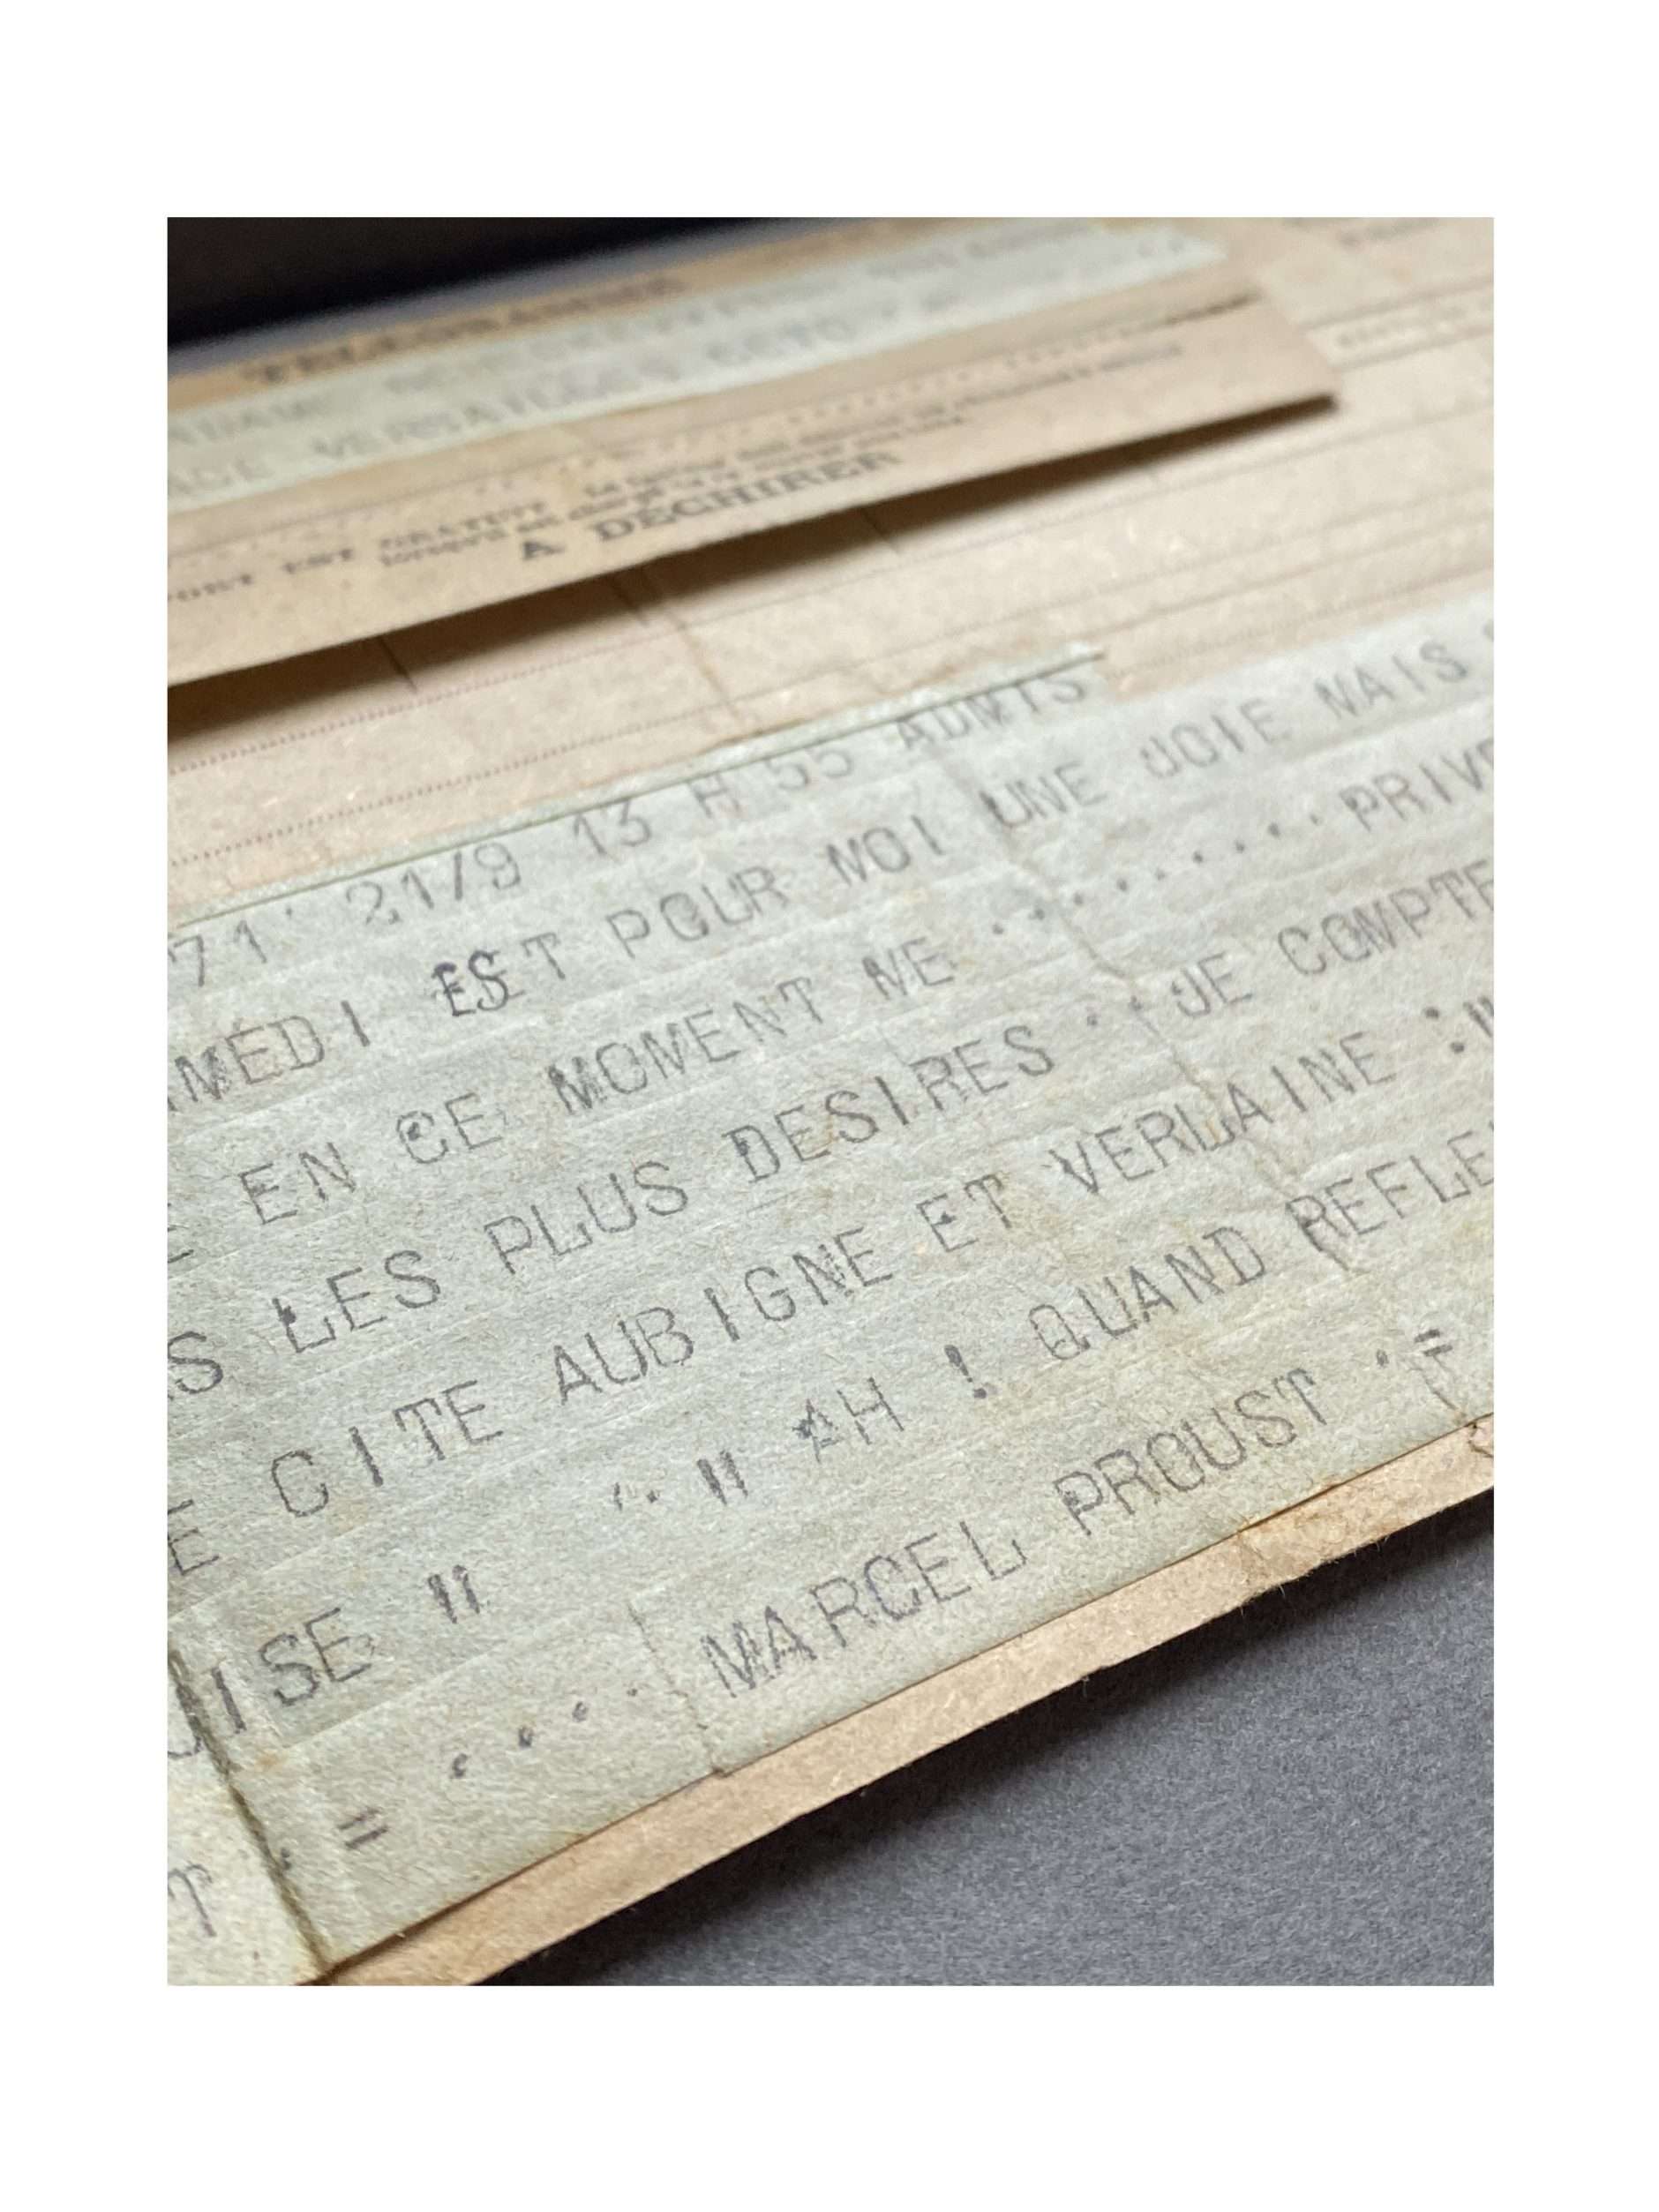 TELEGRAMME
VERSAILLES
PORT EST GRATUIT.
A DÉCHIRER
71 21/9 13 H 55 ADMIS
MEDI EST POUR MOI UNE JOIE MAIS
EN CE MOMENT ME ......... PRIVE
S LES PLUS DESIRES . JE COMPTE
E CITE AUBIGNE ET VERLAINE :"
ISE " .. " AH ! QUAND REFLE
.... MARCEL PROUST .=
T . =